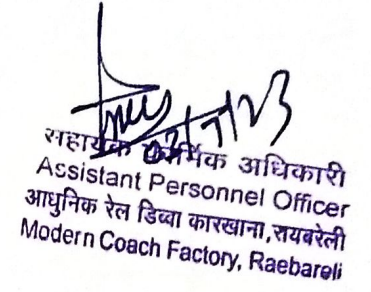 03/7/23
सहायक कार्मिक अधिकारी
Assistant Personnel Officer
आधुनिक रेल डिब्बा कारखाना, रायबरेली
Modern Coach Factory, Raebareli